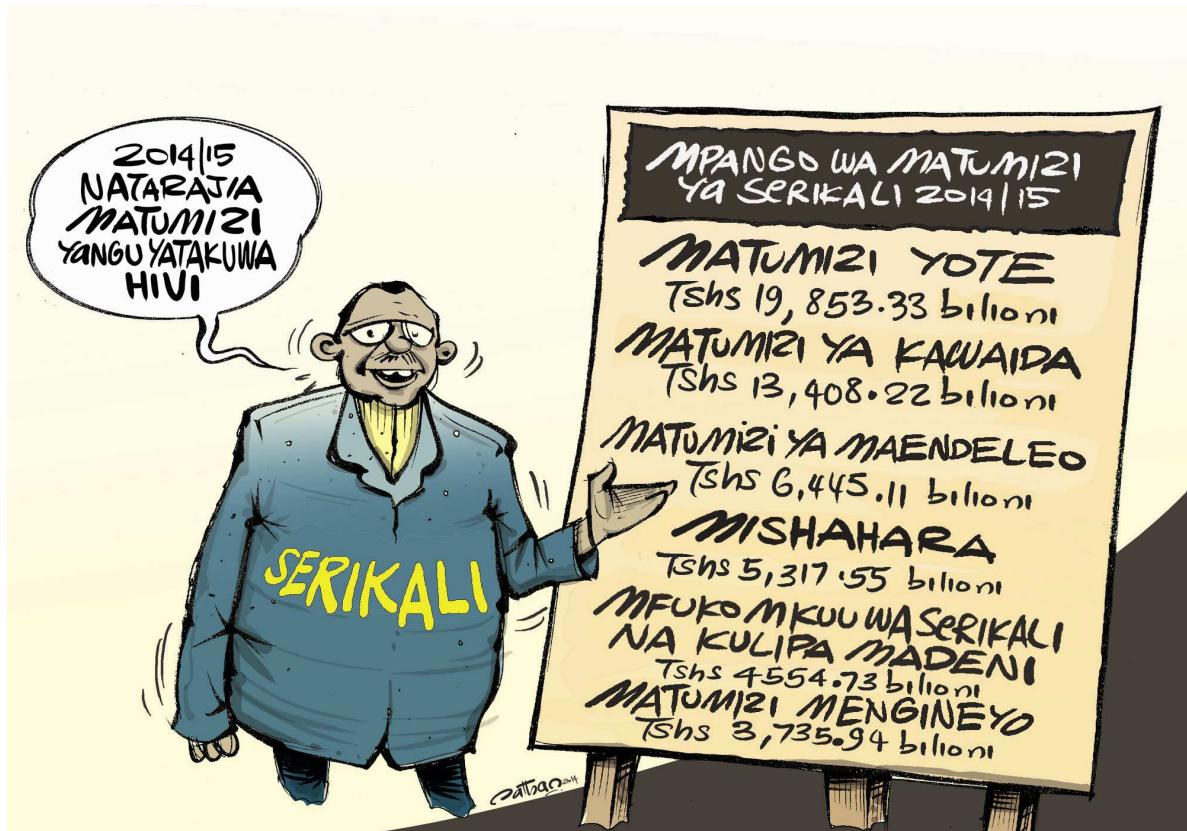 2014/15
NATARAJIA
MATUMIZI
YANGU YATAKUWA
HIVI
MPANGO WA MATUMIZI
YA SERIKALI 2014/15
MATUMIZI YOTE
Tshs 19,853.33 bilioni
MATUMIZI YA KAWAIDA
Tshs 13,408.22 bilioni
MATUMIZI YA MAENDELEO
Tshs 6,445.11 bilioni
MISHAHARA
Tshs 5,317.55 bilioni
MFUKO MKUU WA SERIKALI
NA KULIPA MADENI
Tshs 4554.73 bilioni
MATUMIZI MENGINEYO
Tshs 3,735.94 bilioni
SERIKALI